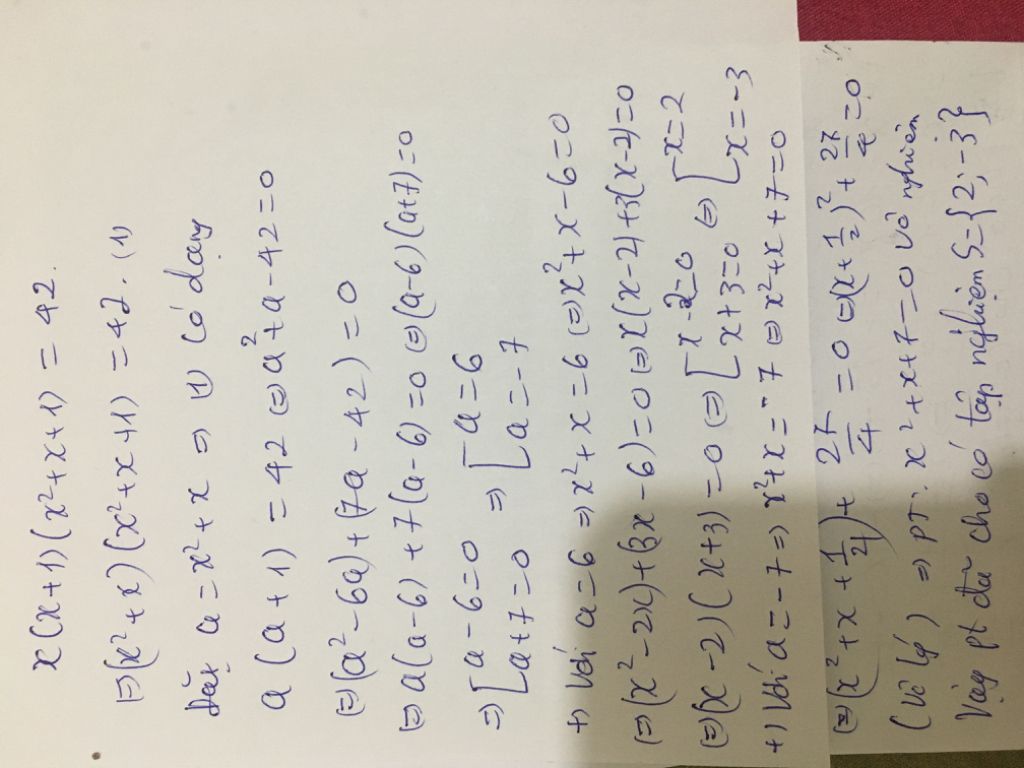 x(x+1)(x²+x+1) = 42.
⇔ (x²+x)(x²+x+1) = 42. (1)
Đặt a = x²+x ⇒ (1) có dạng
a(a+1) = 42 ⇔ a²+a-42=0
⇔ (a²-6a)+(7a-42)=0
⇔ a(a-6)+7(a-6)=0 ⇔ (a-6)(a+7)=0
⇒ [a-6=0 ⇒ [a=6
[a+7=0 [a=-7
+) Với a=6 ⇒ x²+x=6 ⇔ x²+x-6=0
⇔ (x²-2x)+(3x-6)=0 ⇔ x(x-2)+3(x-2)=0
⇔ (x-2)(x+3)=0 ⇔ [x-2=0 ⇔ [x=2
[x+3=0 [x=-3
+) Với a=-7 ⇒ x²+x=-7 ⇔ x²+x+7=0
⇔ (x²+x+1/4)+27/4=0 ⇔ (x+1/2)²+27/4=0
(Vô lý) ⇒ pt: x²+x+7=0 vô nghiệm
Vậy pt đã cho có tập nghiệm S={2;-3}